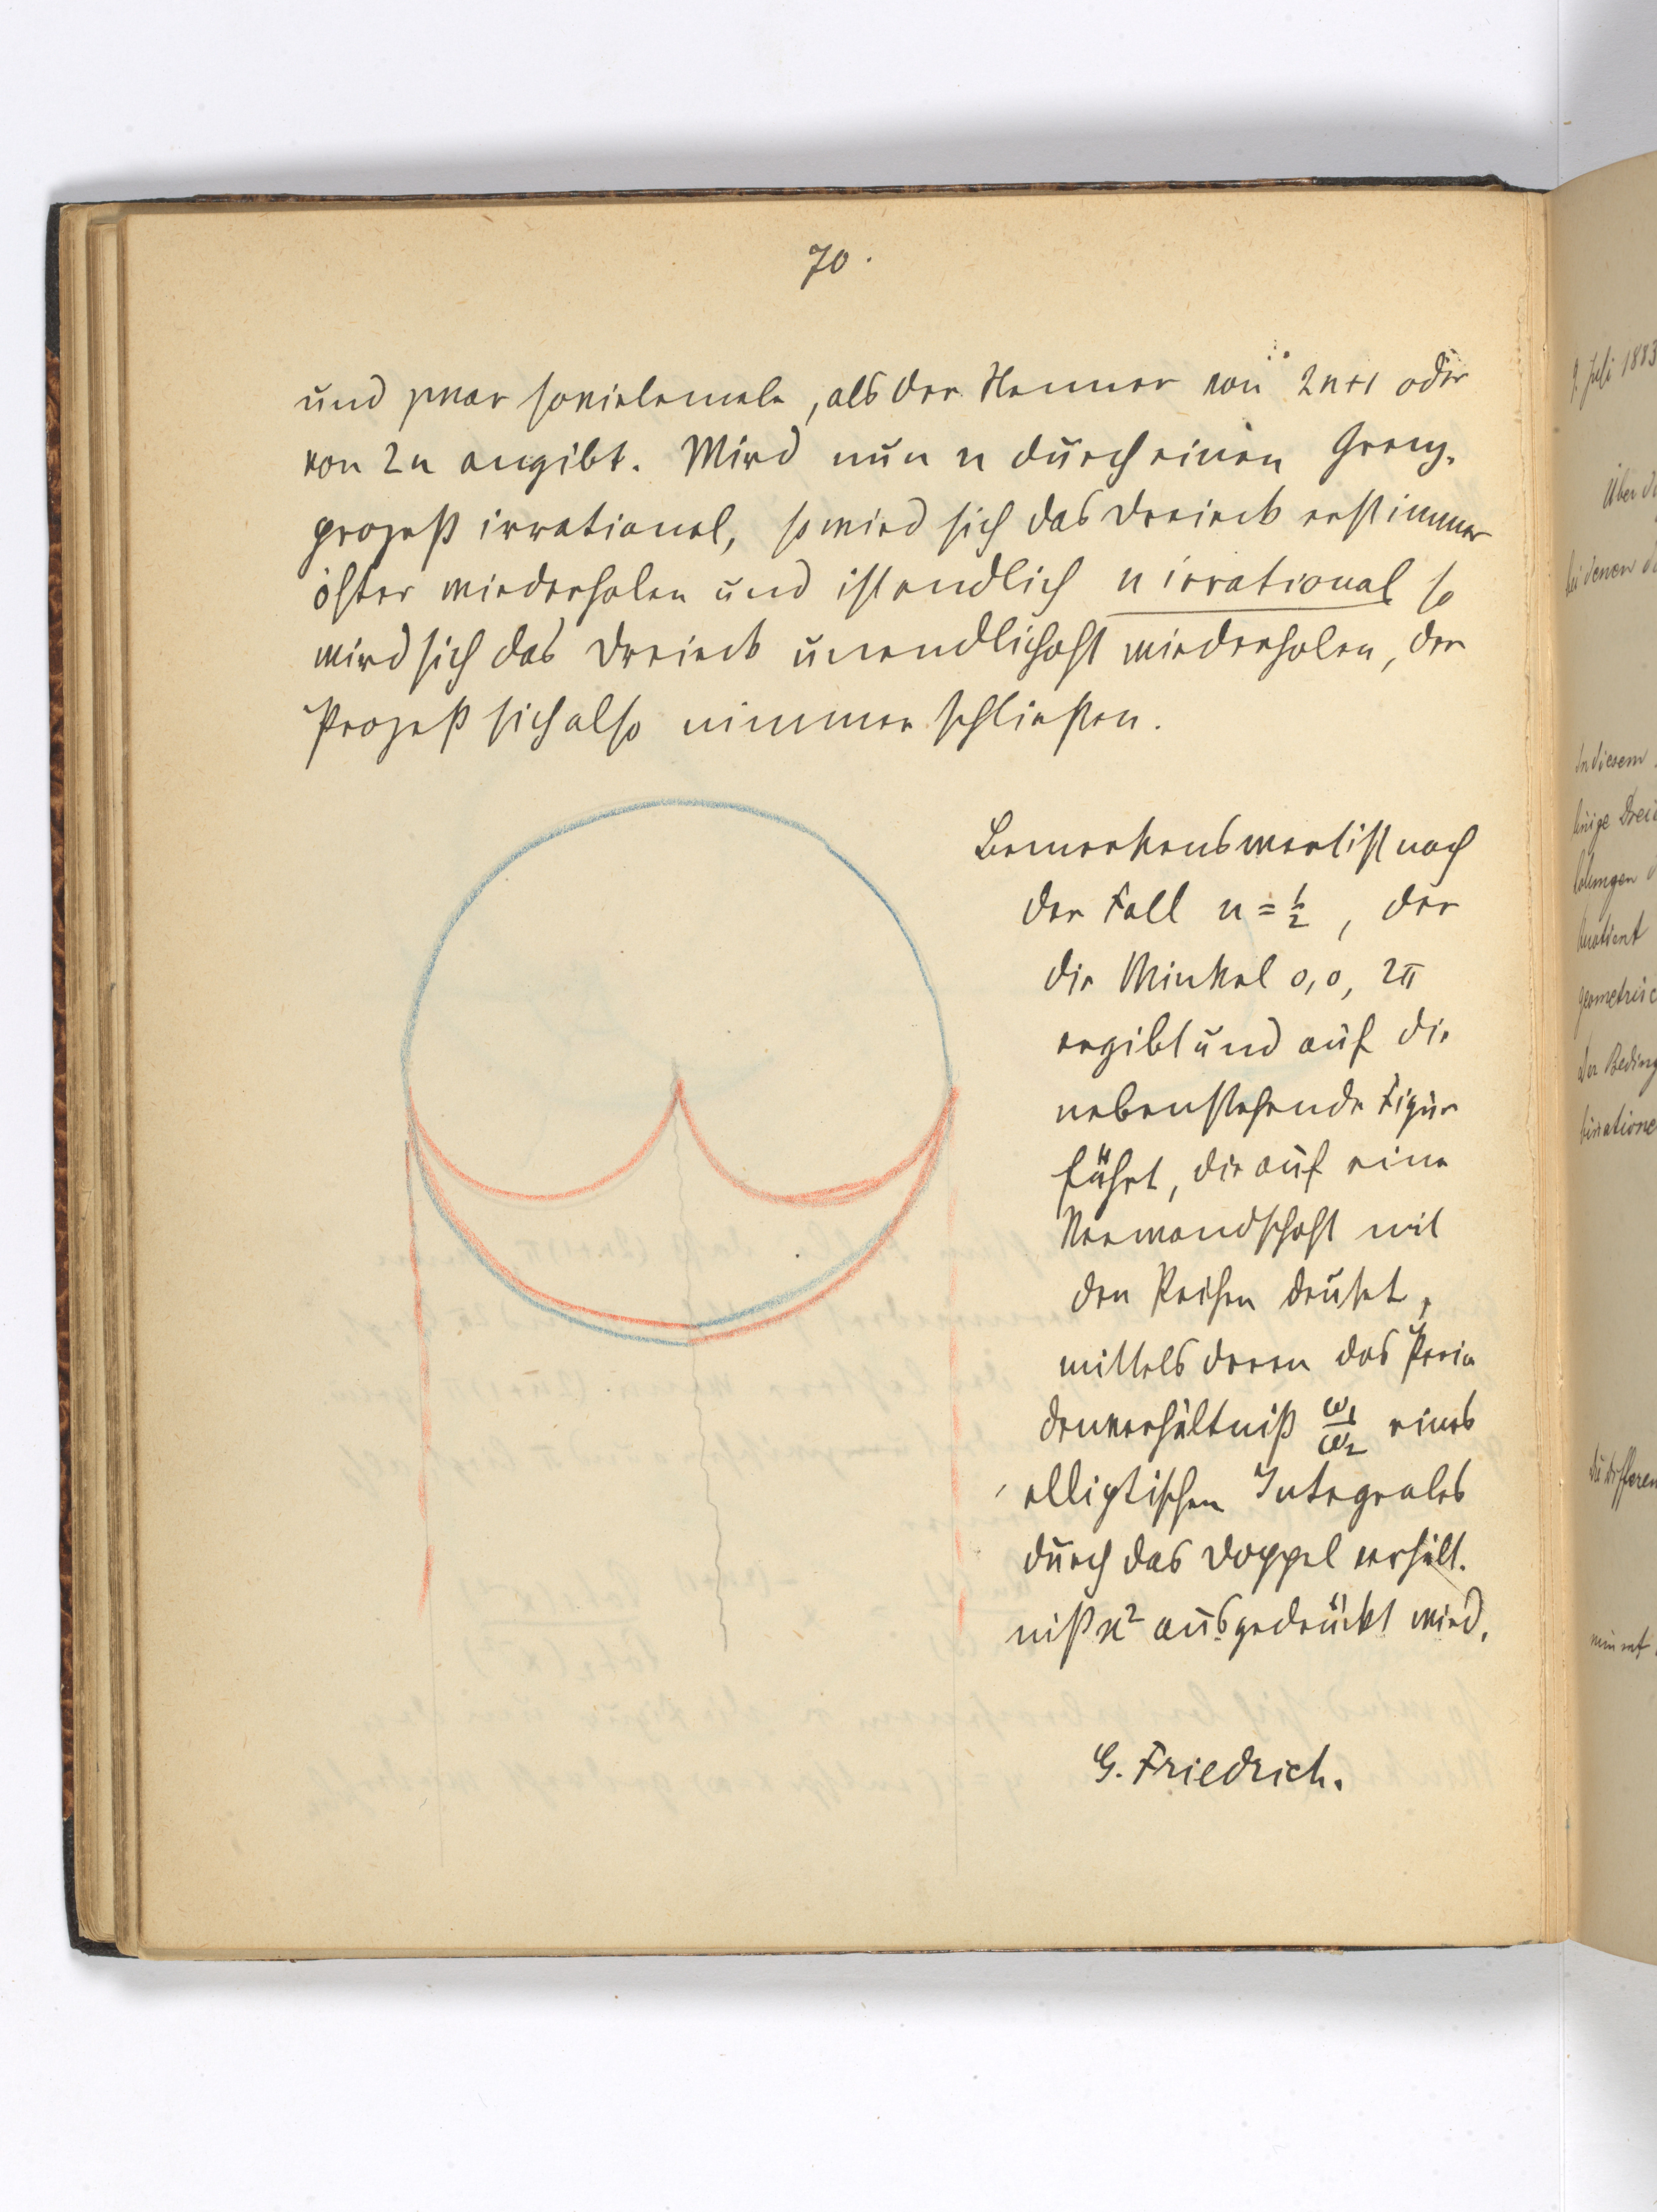 70.
und zwar sovielemale, als der Nenner von 2n+1 oder
von 2n angibt. Wird nun n durch einen Grenz-
prozeß irrational, so wird sich das Dreieck erst immer
öfter wiederholen und ist endlich n irrational so
wird sich das Dreieck unendlich oft wiederholen, der
Prozeß sich also nimmer schließen.
Bemerkenswert ist noch
der Fall n = 1/2, der
die Winkel 0, 0, 2π
ergibt und auf die
nebenstehende Figur
führt, die auf eine
Verwandschaft mit
den Reihen deutet,
mittels deren das Perio
denverhältniß ω1/ω2 eines
elliptischen Integrales
durch das Doppelverhält-
niß ϰ² ausgedrückt wird.
G. Friedrich.
9. Juli 1883
Über d
bei denen d
In diesem
Drei
geometrisc
der Beding